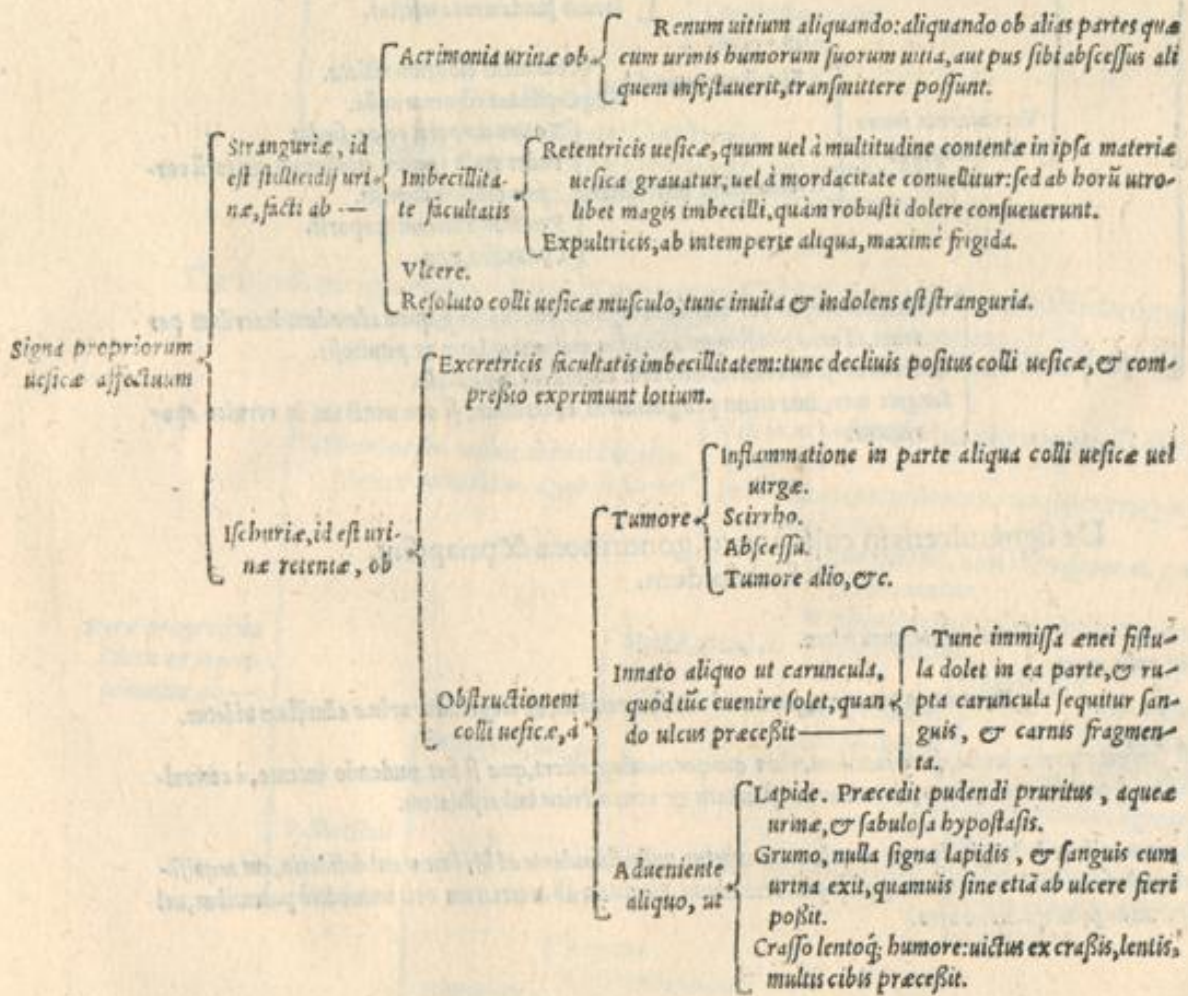 Signa propriorum
uesicæ affectuum
Stranguriæ, id
est stillicidij uri-
næ, facti ab —
Acrimonia urinæ ob
Renum uitium aliquando: aliquando ob alias partes quæ
cum urinis humorum suorum uitia, aut pus sibi abscessus ali
quem infestauerit, transmittere possunt.
Imbecillita-
te facultatis
Retentricis uesicæ, quum uel à multitudine contentæ in ipsa materiæ
uesica grauatur, uel à mordacitate conuellitur: sed ab horũ utro-
libet magis imbecilli, quàm robusti dolere consueuerunt.
Expultricis, ab intemperie aliqua, maximè frigida.
Vlcere.
Resoluto colli uesicæ musculo, tunc inuita & indolens est stranguria.
Ischuriæ, id est uri-
næ retentæ, ob
Excretricis facultatis imbecillitatem: tunc decliuis positus colli uesicæ, & com-
preßio exprimunt lotium.
Obstructionem
colli uesicæ, à
Tumore
Inflammatione in parte aliqua colli uesicæ uel
uirgæ.
Scirrho.
Abscessu.
Tumore alio, &c.
Innato aliquo ut caruncula,
quòd tũc euenire solet, quan
do ulcus præceßit —
Tunc immissa ænei fistu-
la dolet in ea parte, & ru-
pta caruncula sequitur san-
guis, & carnis fragmen-
ta.
Adueniente
aliquo, ut
Lapide. Præcedit pudendi pruritus, aqueæ
urinæ, & sabulosa hypostasis.
Grumo, nulla signa lapidis, & sanguis cum
urina exit, quamuis sine etiã ab ulcere fieri
poßit.
Crasso lentoq́; humore: uictus ex craßis, lentis,
multis cibis præceßit.